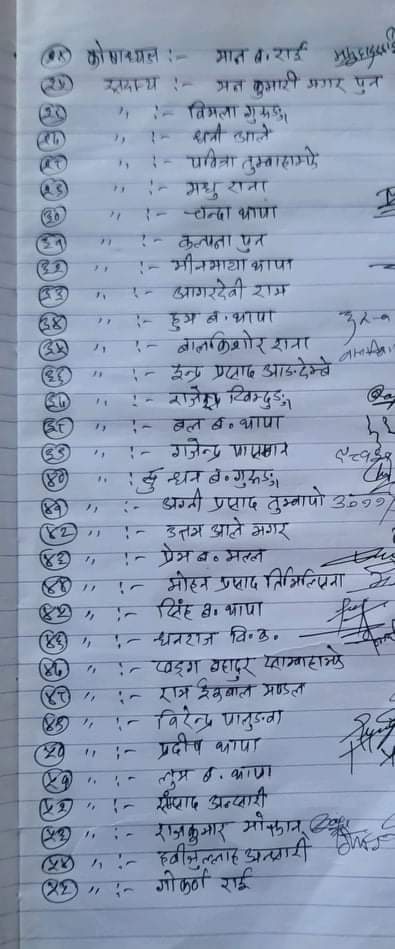 २४ कोषाध्यक्ष :- मान ब. राई
२५ सदस्य :- मन कुमारी मगर पुन
२६ " :- विमला गुरुङ्ग
२७ " :- धनी आले
२८ " :- पवित्रा तुम्बाहाम्फे
२९ " :- मधु राना
३० " :- चन्द्रा थापा
३१ " :- कल्पना पुन
३२ " :- मीनमाया थापा
३३ " :- आगरदेवी राम
३४ " :- हुम ब. थापा
३५ " :- बालकिशोर राना
३६ " :- इन्द्र प्रसाद आङदेम्बे
३७ " :- राजेन्द्र
३८ " :- बल ब. थापा
३९ " :- गजेन्द्र
४० " :- धन ब. गुरुङ्ग
४१ " :- अग्नी प्रसाद तुम्बापो
४२ " :- उत्तम आले मगर
४३ " :- प्रेम ब. मल्ल
४४ " :- मोहन प्रसाद तिमिल्सिना
४५ " :- सिंह ब. थापा
४६ " :- धनराज वि.क.
४७ " :- खड्ग बहादुर
४८ " :- राम ईकवाल मण्डल
४९ " :- विरेन्द्र पालुङवा
५० " :- प्रदीप थापा
५१ " :- लुम ब. थापा
५२ " :- अन्सारी
५३ " :- राजकुमार मोक्तान
५४ " :- हवीबुल्लाह अन्सारी
५५ " :- गोकर्ण राई